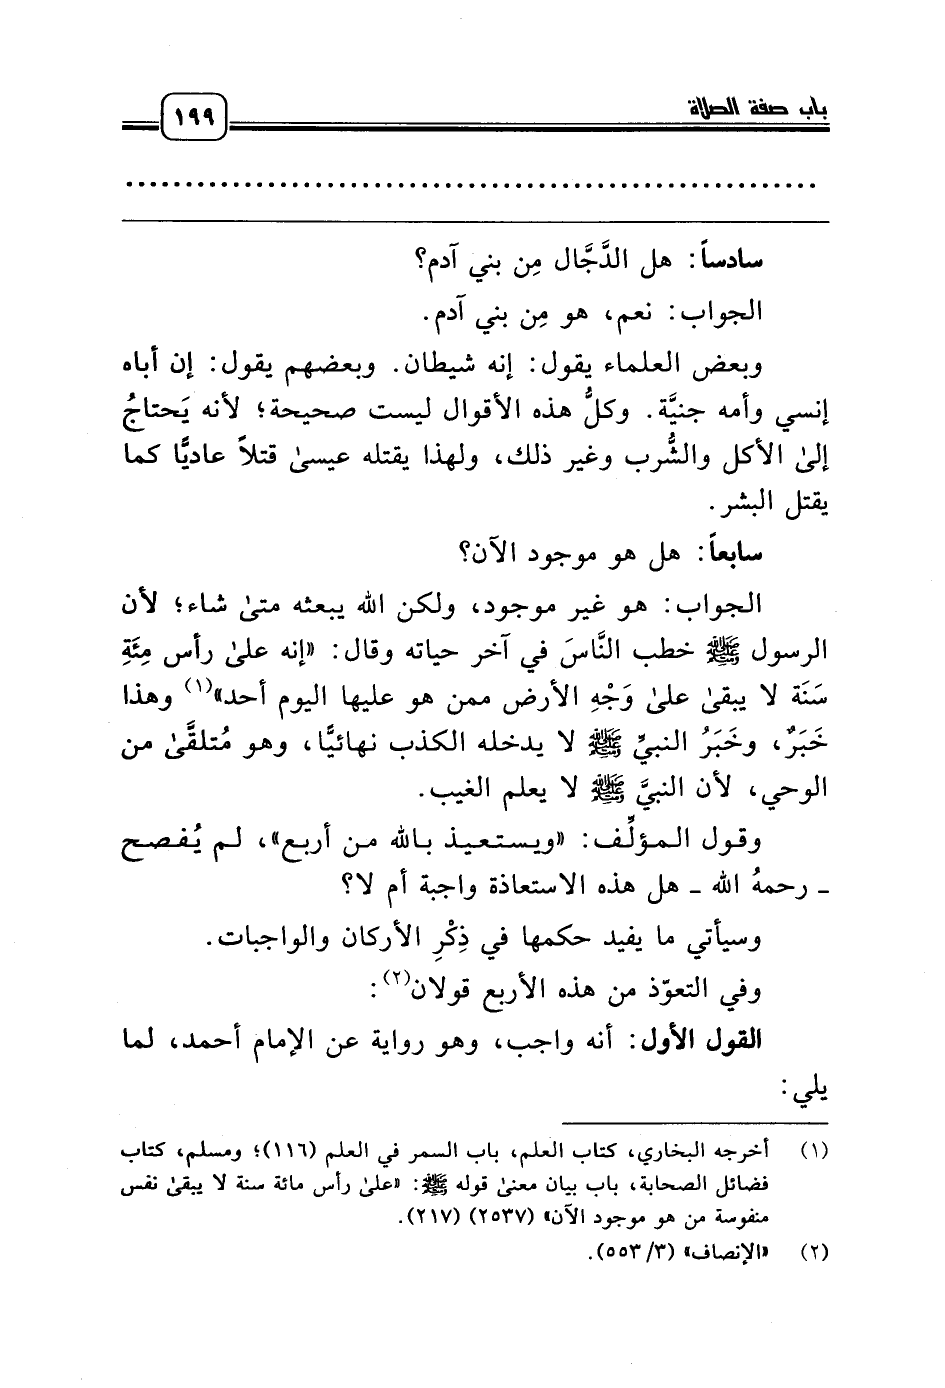 باب صفة الصلاة
١٩٩
سادساً: هل الدَّجَّال مِن بني آدم؟
الجواب: نعم، هو مِن بني آدم.
وبعض العلماء يقول: إنه شيطان. وبعضهم يقول: إن أباه
إنسي وأمه جنيَّة. وكلُّ هذه الأقوال ليست صحيحة؛ لأنه يَحتاجُ
إلىٰ الأكل والشُّرب وغير ذلك، ولهذا يقتله عيسىٰ قتلاً عاديًّا كما
يقتل البشر.
سابعاً: هل هو موجود الآن؟
الجواب: هو غير موجود، ولكن الله يبعثه متىٰ شاء؛ لأن
الرسول ﷺ خطب النَّاسَ في آخر حياته وقال: «إنه علىٰ رأس مِئَةِ
سَنَة لا يبقىٰ علىٰ وَجْهِ الأرض ممن هو عليها اليوم أحد»(١) وهذا
خَبَرٌ، وخَبَرُ النبيِّ ﷺ لا يدخله الكذب نهائيًّا، وهو مُتلقَّىٰ من
الوحي، لأن النبيَّ ﷺ لا يعلم الغيب.
وقول المؤلِّف: «ويستعيذ بالله من أربع»، لم يُفصح
ـ رحمهُ الله ـ هل هذه الاستعاذة واجبة أم لا؟
وسيأتي ما يفيد حكمها في ذِكْرِ الأركان والواجبات.
وفي التعوّذ من هذه الأربع قولان(٢):
القول الأول: أنه واجب، وهو رواية عن الإمام أحمد، لما
يلي:
(١) أخرجه البخاري، كتاب العلم، باب السمر في العلم (١١٦)؛ ومسلم، كتاب
فضائل الصحابة، باب بيان معنىٰ قوله ﷺ: «علىٰ رأس مائة سنة لا يبقىٰ نفس
منفوسة من هو موجود الآن» (٢٥٣٧) (٢١٧).
(٢) «الإنصاف» (٣/ ٥٥٣).